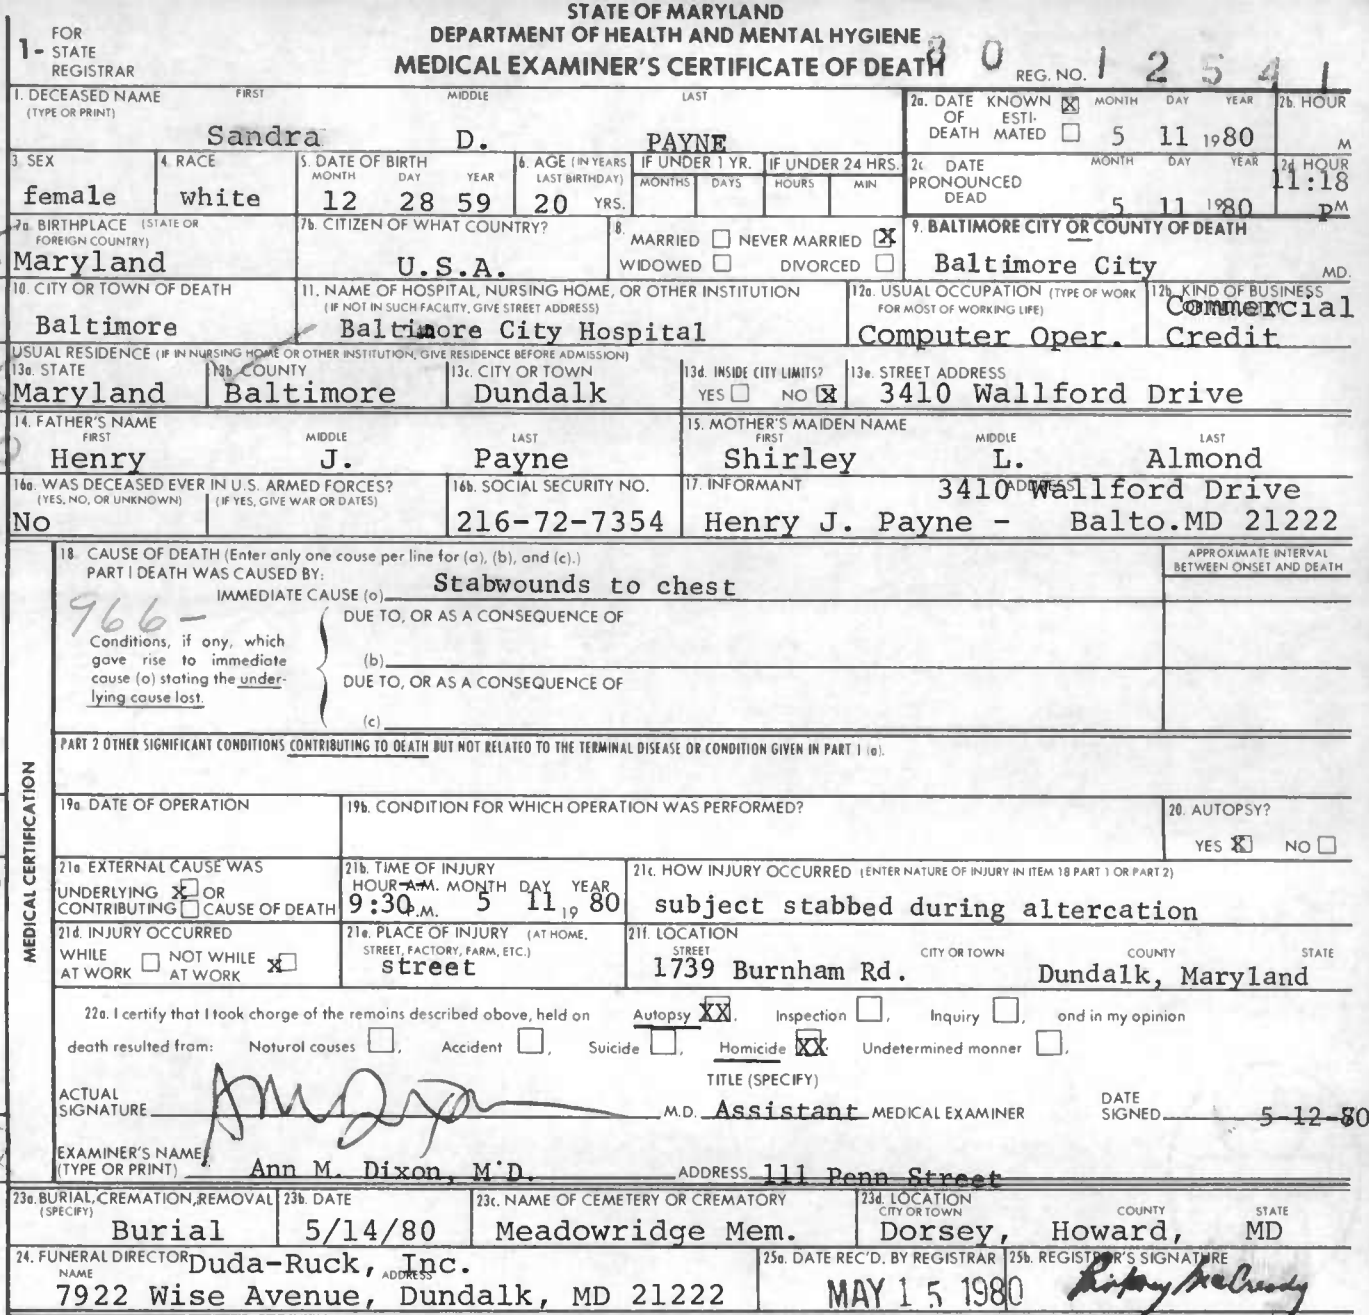 STATE OF MARYLAND
DEPARTMENT OF HEALTH AND MENTAL HYGIENE
MEDICAL EXAMINER'S CERTIFICATE OF DEATH
1- FOR STATE REGISTRAR
80 REG. NO. 12541
1. DECEASED NAME (TYPE OR PRINT) FIRST MIDDLE LAST
Sandra D. PAYNE
2a. DATE OF DEATH KNOWN X ESTIMATED MONTH DAY YEAR 2b. HOUR
5 11 1980 M
3. SEX 4. RACE 5. DATE OF BIRTH MONTH DAY YEAR 6. AGE (IN YEARS LAST BIRTHDAY) IF UNDER 1 YR. MONTHS DAYS IF UNDER 24 HRS. HOURS MIN
female white 12 28 59 20 YRS.
2c DATE PRONOUNCED DEAD MONTH DAY YEAR 2d HOUR
5 11 1980 11:18 PM
7a. BIRTHPLACE (STATE OR FOREIGN COUNTRY) 7b. CITIZEN OF WHAT COUNTRY?
Maryland U.S.A.
8. MARRIED NEVER MARRIED X
WIDOWED DIVORCED
9. BALTIMORE CITY OR COUNTY OF DEATH
Baltimore City MD.
10. CITY OR TOWN OF DEATH
Baltimore
11. NAME OF HOSPITAL, NURSING HOME, OR OTHER INSTITUTION
(IF NOT IN SUCH FACILITY, GIVE STREET ADDRESS)
Baltimore City Hospital
12a. USUAL OCCUPATION (TYPE OF WORK FOR MOST OF WORKING LIFE)
Computer Oper.
12b. KIND OF BUSINESS
Commercial
Credit
USUAL RESIDENCE (IF IN NURSING HOME OR OTHER INSTITUTION, GIVE RESIDENCE BEFORE ADMISSION)
13a. STATE 13b. COUNTY 13c. CITY OR TOWN 13d. INSIDE CITY LIMITS? 13e. STREET ADDRESS
Maryland Baltimore Dundalk YES NO X 3410 Wallford Drive
14. FATHER'S NAME FIRST MIDDLE LAST
Henry J. Payne
15. MOTHER'S MAIDEN NAME FIRST MIDDLE LAST
Shirley L. Almond
16a. WAS DECEASED EVER IN U.S. ARMED FORCES?
(YES, NO, OR UNKNOWN) (IF YES, GIVE WAR OR DATES)
No
16b. SOCIAL SECURITY NO.
216-72-7354
17. INFORMANT ADDRESS
3410 Wallford Drive
Henry J. Payne - Balto.MD 21222
MEDICAL CERTIFICATION
18. CAUSE OF DEATH (Enter only one cause per line for (a), (b), and (c).)
PART I DEATH WAS CAUSED BY:
IMMEDIATE CAUSE (a) Stabwounds to chest
APPROXIMATE INTERVAL BETWEEN ONSET AND DEATH
966-
Conditions, if any, which gave rise to immediate cause (a) stating the underlying cause last.
DUE TO, OR AS A CONSEQUENCE OF
(b)
DUE TO, OR AS A CONSEQUENCE OF
(c)
PART 2 OTHER SIGNIFICANT CONDITIONS CONTRIBUTING TO DEATH BUT NOT RELATED TO THE TERMINAL DISEASE OR CONDITION GIVEN IN PART 1 (a).
19a. DATE OF OPERATION
19b. CONDITION FOR WHICH OPERATION WAS PERFORMED?
20. AUTOPSY?
YES X NO
21a EXTERNAL CAUSE WAS
UNDERLYING X OR
CONTRIBUTING CAUSE OF DEATH
21b. TIME OF INJURY
HOUR A.M. MONTH DAY YEAR
9:30 P.M. 5 11, 19 80
21c. HOW INJURY OCCURRED (ENTER NATURE OF INJURY IN ITEM 18 PART 1 OR PART 2)
subject stabbed during altercation
21d. INJURY OCCURRED
WHILE AT WORK NOT WHILE AT WORK X
21e. PLACE OF INJURY (AT HOME, STREET, FACTORY, FARM, ETC.)
street
21f. LOCATION
STREET CITY OR TOWN COUNTY STATE
1739 Burnham Rd. Dundalk, Maryland
22a. I certify that I took charge of the remains described above, held on Autopsy XX, Inspection, Inquiry, and in my opinion
death resulted from: Natural causes, Accident, Suicide, Homicide XX. Undetermined manner.
TITLE (SPECIFY)
ACTUAL SIGNATURE M.D. Assistant MEDICAL EXAMINER DATE SIGNED 5-12-80
EXAMINER'S NAME (TYPE OR PRINT) Ann M. Dixon, M.D. ADDRESS 111 Penn Street
23a. BURIAL, CREMATION, REMOVAL (SPECIFY) 23b. DATE 23c. NAME OF CEMETERY OR CREMATORY 23d. LOCATION CITY OR TOWN COUNTY STATE
Burial 5/14/80 Meadowridge Mem. Dorsey, Howard, MD
24. FUNERAL DIRECTOR NAME ADDRESS
Duda-Ruck, Inc.
7922 Wise Avenue, Dundalk, MD 21222
25a. DATE REC'D. BY REGISTRAR
MAY 15 1980
25b. REGISTRAR'S SIGNATURE